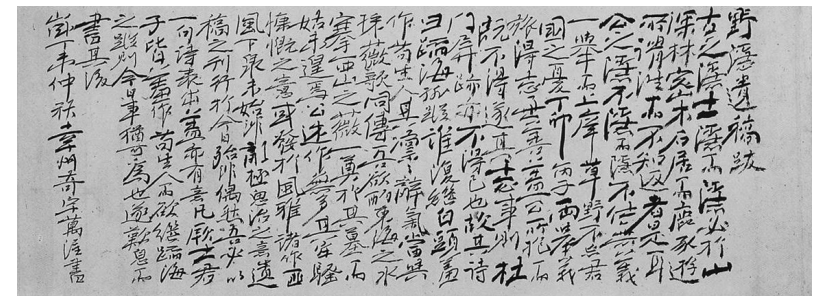 野隱遺稿跋
古之隱士隱而隱必於山
深林密木石居而鹿豕遊
所謂往而不知返者是耳
公之隱不隱而隱不仕無義
一擧而上庠草野不忘君
國之憂丁卯丙子兩募義
旅得志士無公而
旣不得遂其志事則杜
門屛跡亦不得已也故其詩
曰蹈海孤蹤誰復繼白頭羞
作苟生人其凜凜辭氣當與
採薇歌同傳吾欲酌東海之水
搴西山之薇一奠於其墓而
姑未遑焉公述作無多且牢騷
慷慨之意或發於風雅諸作而
風下泉未始非亂極思治之意遺
稿之刊行於今日殆非偶然吾必以
一句語表出蓋亦有意凡我士君
子皆羞作苟生人而欲繼蹈海
之蹤則今日事猶可爲也遂歎息而
書其後
歲丁未仲秋幸州奇宇萬謹書